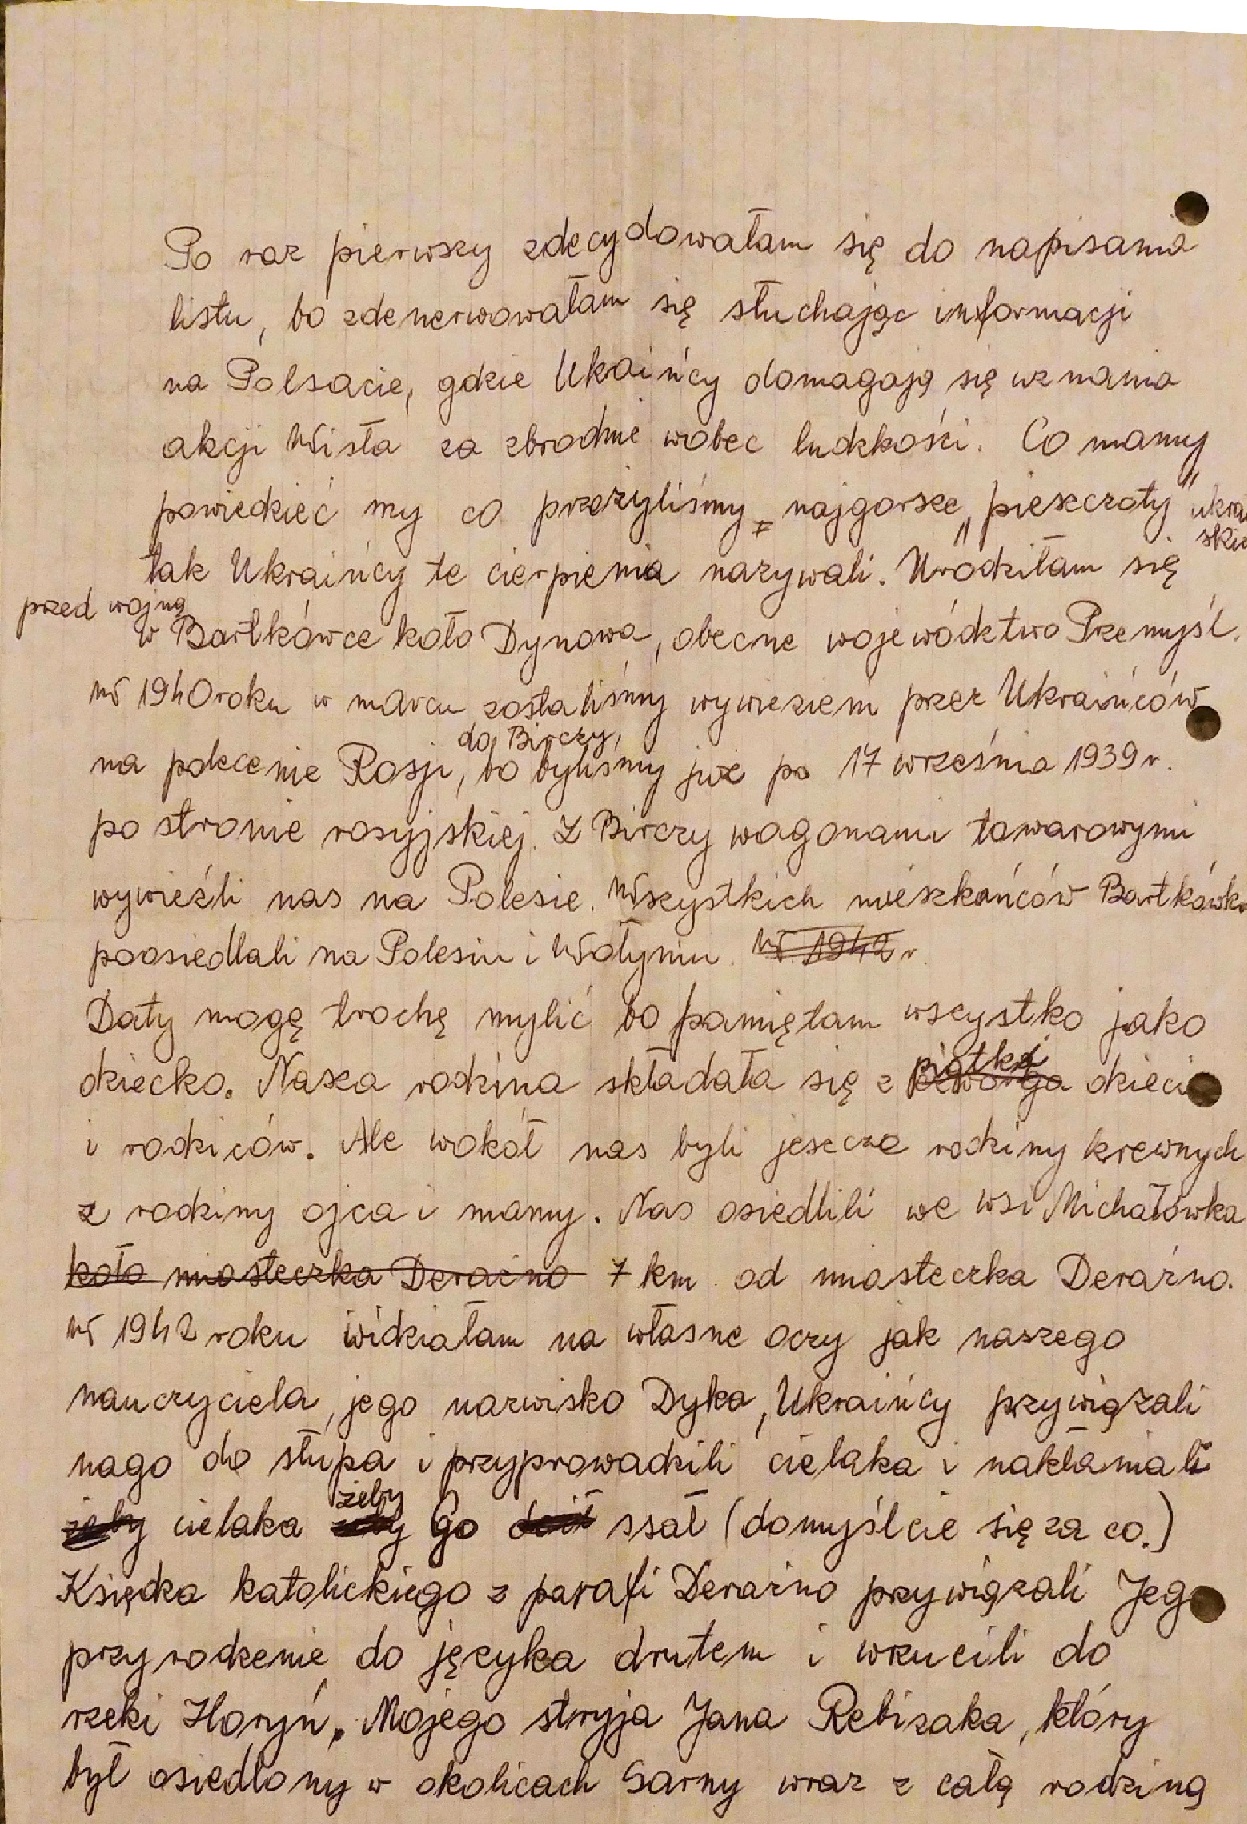 Po raz pierwszy zdecydowałam się do napisania
listu, bo zdenerwowałam się słuchając informacji
na Polsacie, gdzie Ukaińcy domagają się uznania
akcji Wisła za zbrodnie wobec ludzkości. Co mamy
powiedzieć my co przeżyliśmy najgorsze „pieszczoty" ukra
skie
tak Ukraińcy te cierpienia nazywali. Urodziłam się
przed wojną
w Bartkówce koło Dynowa, obecne województwo Przemyśl.
W 1940 roku w marcu zostaliśmy wywiezieni przez Ukraińców
do Birczy,
na polecenie Rosji, bo byliśmy już po 17 września 1939 r.
po stronie rosyjskiej. Z Birczy wagonami towarowymi
wywieźli nas na Polesie. Wszystkich mieszkańców Bartkówk
poosiedlali na Polesiu i Wołyniu. W 1942 r.
Daty mogę trochę mylić bo pamiętam wszystko jako
dziecko. Nasza rodzina składała się z piątki dzieci
i rodziców. Ale wokół nas byli jeszcze rodziny krewnych
z rodziny ojca i mamy. Nas osiedlili we wsi Michałówka
koło miasteczka Deraźno 7 km od miasteczka Deraźno.
W 1942 roku widziałam na własne oczy jak naszego
nauczyciela, jego nazwisko Dyka, Ukraińcy przywiązali
nago do słupa i przyprowadzili cielaka i nakłaniali
żeby
żeby cielaka Go ssał (domyślcie się za co.)
Księdza katolickiego z parafi Deraźno przywiązali Jego
przyrodzenie do języka drutem i wrzucili do
rzeki Horyń. Mojego stryja Jana Rebizaka, który
był osiedlony w okolicach Sarny wraz z całą rodziną